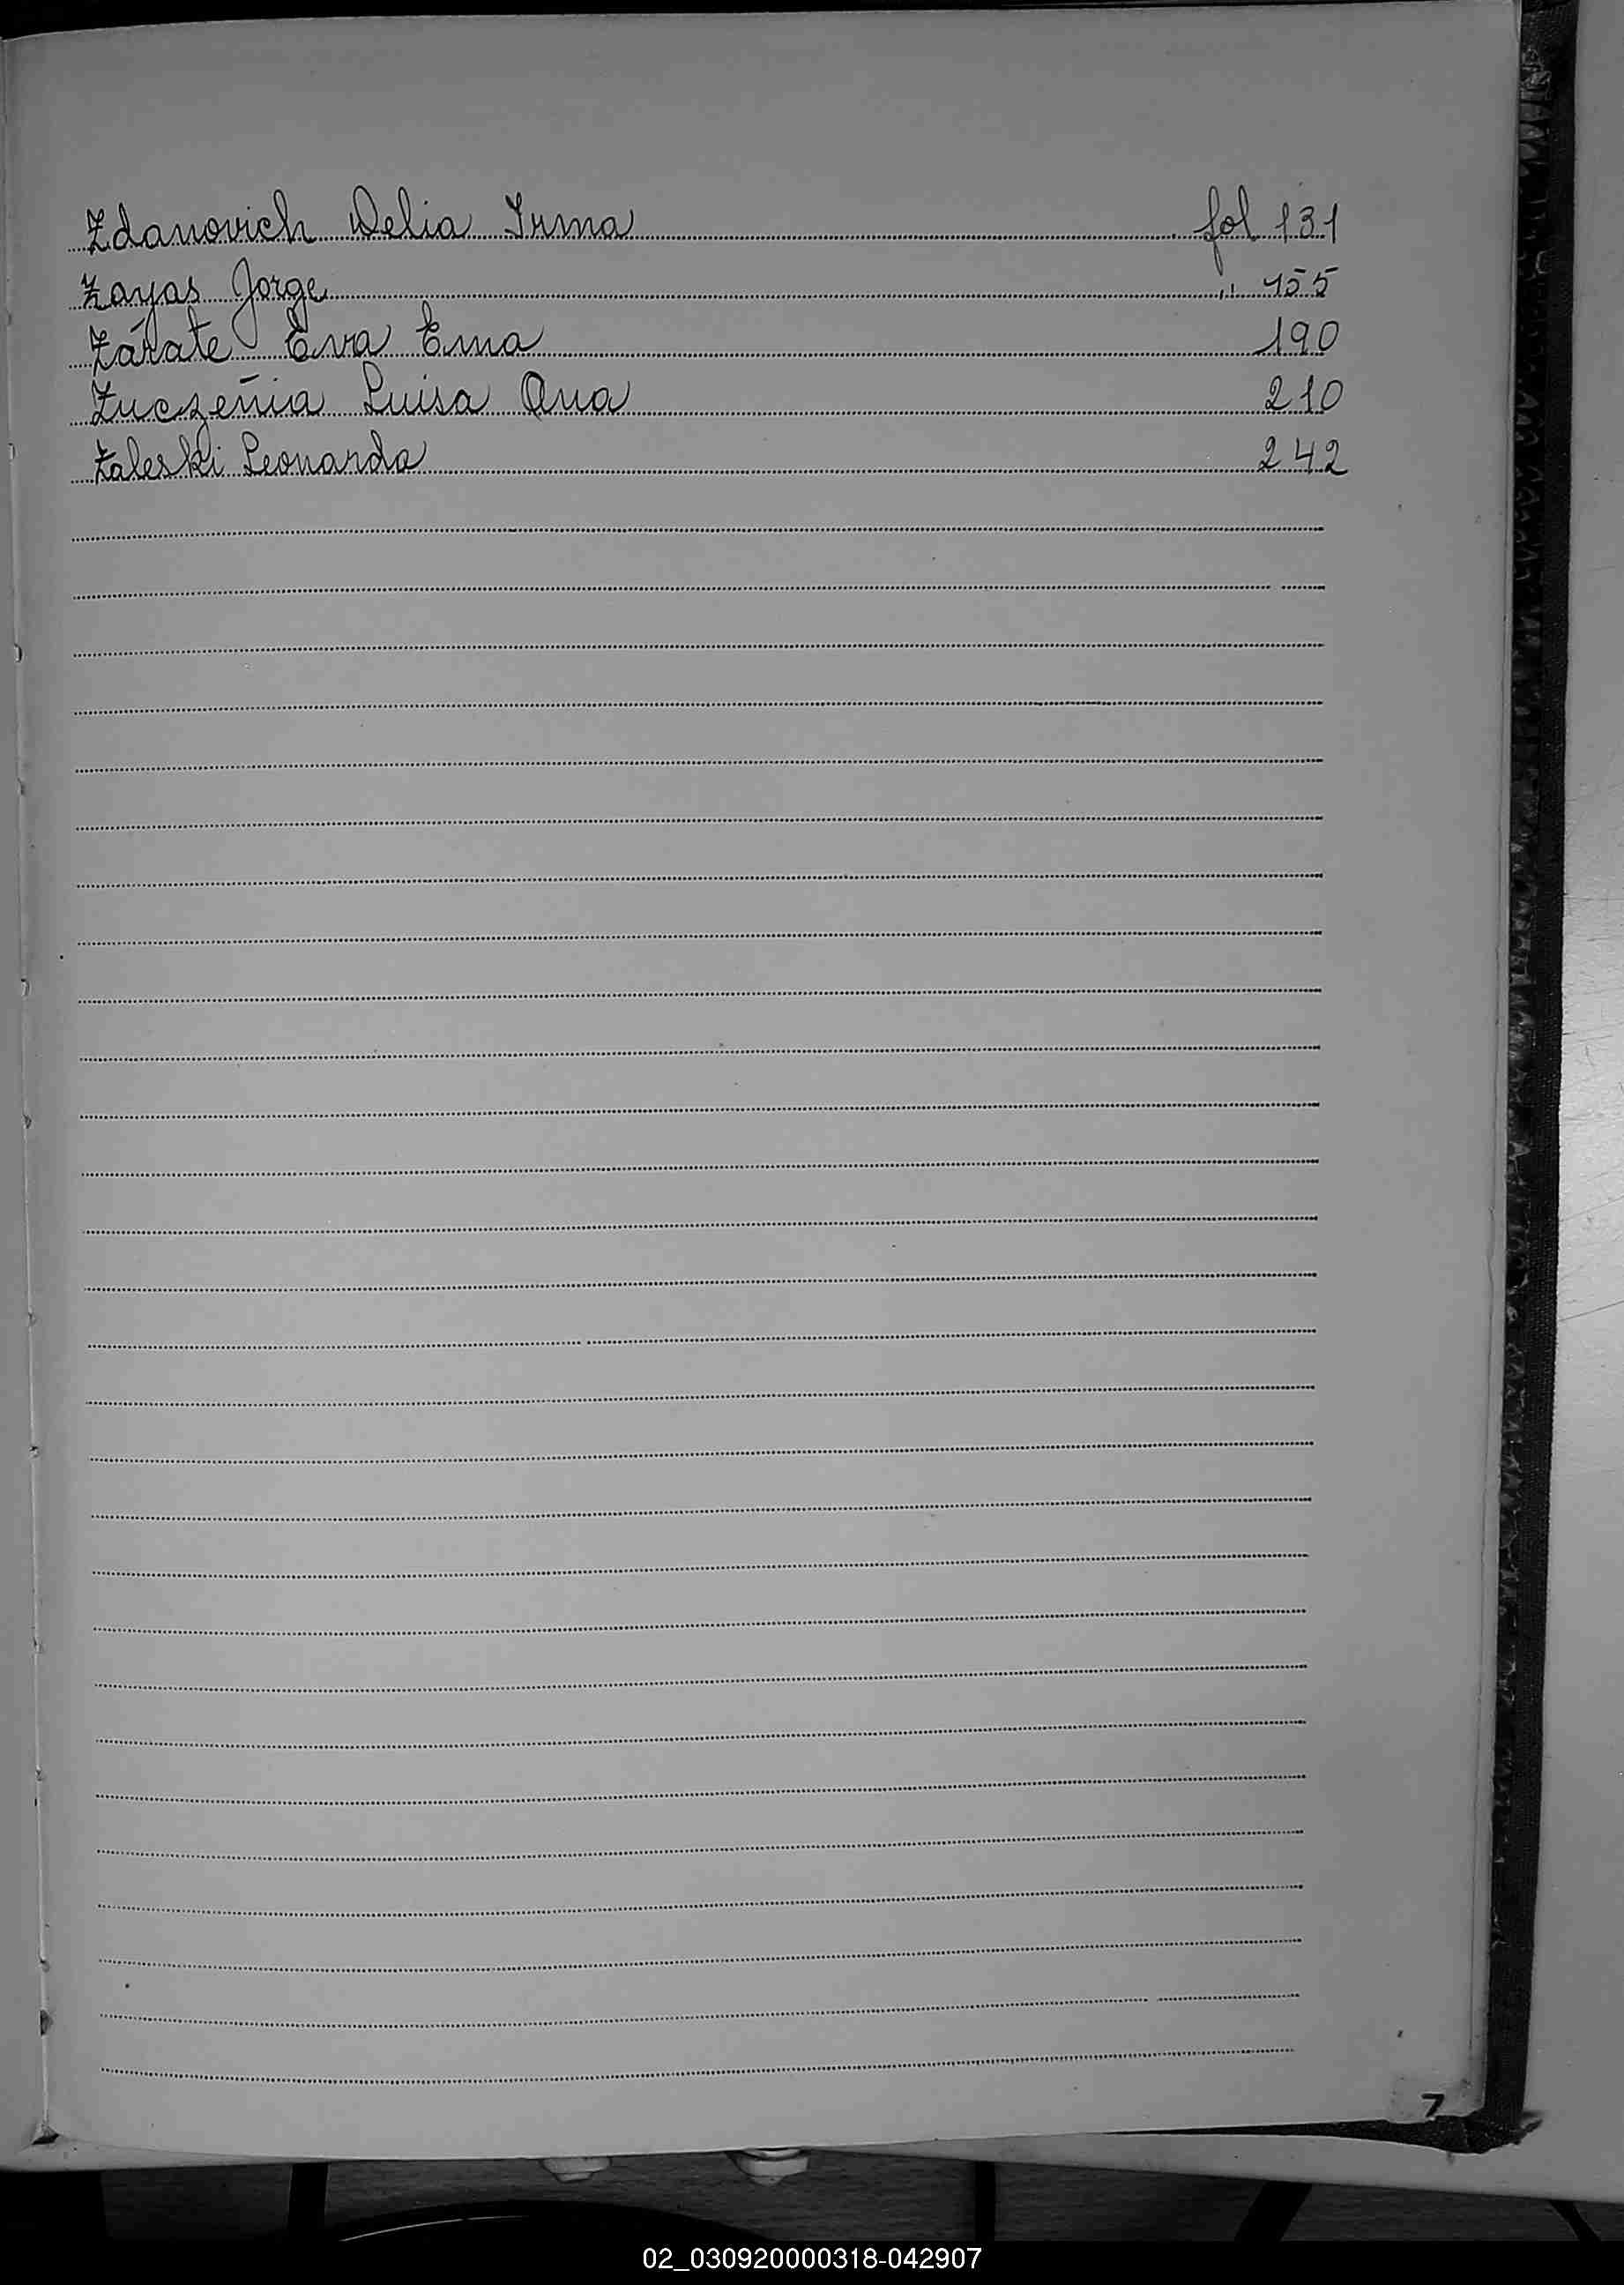 Zdanovich Delia Irma fol 131
Zayas Jorge " 155
Zárate Eva Ema 190
Zuczenia Luisa Ana 210
Zaleski Leonarda 242
Z
02_030920000318-042907